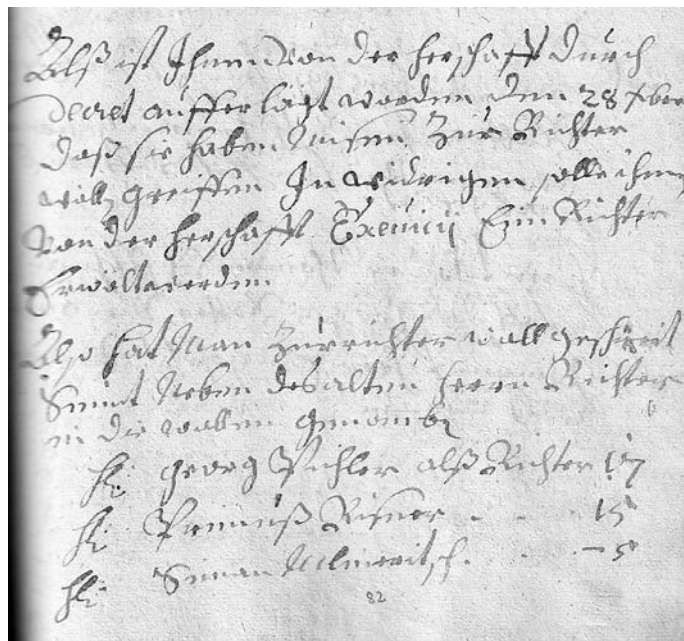 Alß ist Ihnen von der herschafft durch
Decret aufferlagt worden den 28 xber
daß sie haben zur Richter
wall greiffen In widrigen solle ihnen
von der herschafft Ein Richter
Erwölt werden
Also hat Man zur richter wall geschreit
Neben des alten Herrn Richter
in die wallen genomben
H: Georg Pichler alß Richter 17
H: Primuß Risner - - 15
H: Siman - - 5
82